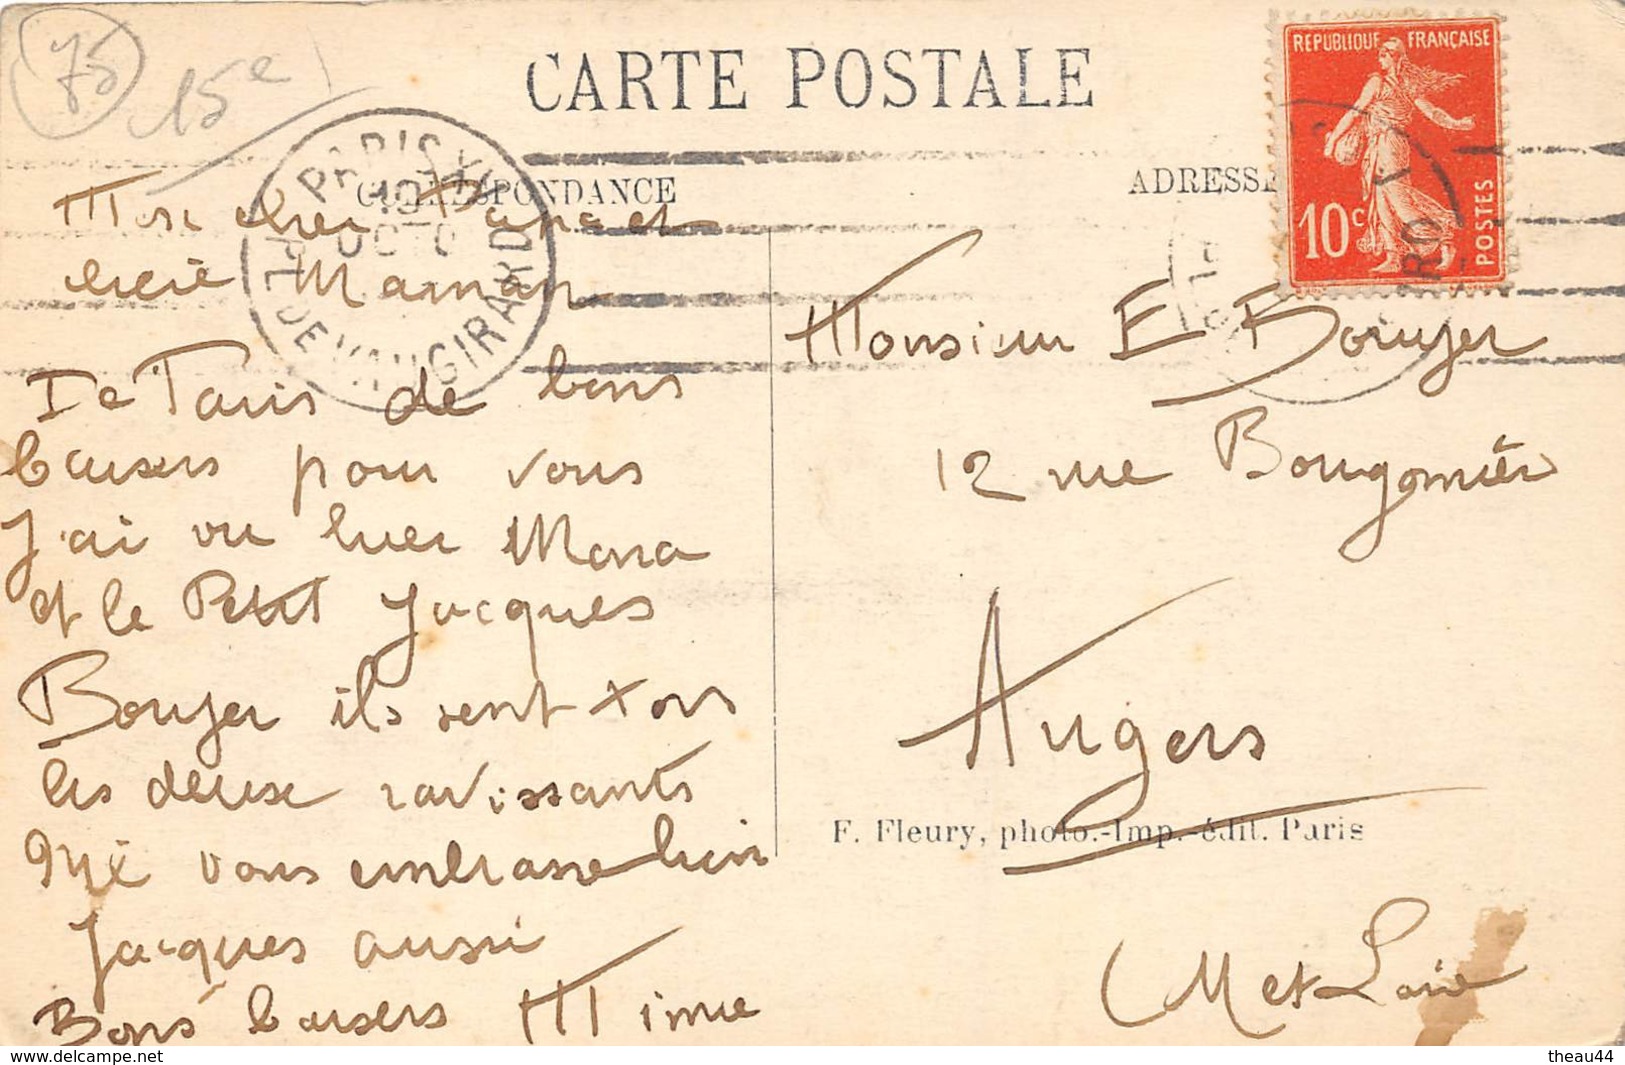 75
15e
CARTE POSTALE
CORRESPONDANCE
ADRESSE
REPUBLIQUE FRANÇAISE
10c
POSTES
PARIS XV
10
OCT
PL. DE VAUGIRARD
RD
Mon cher Papa et
Maman
De Paris de bons
baisers pour vous
J'ai vu hier Mona
et le Petit Jacques
Bouyer ils sont tous
les deux ravissants
Mé vous embrasse bien
Jacques aussi
Bons baisers Mimie
Monsieur E Bouyer
12 rue Bougonnière
Angers
M et Loire
F. Fleury, photo.-Imp.-édit. Paris
delcampe.net
theau44